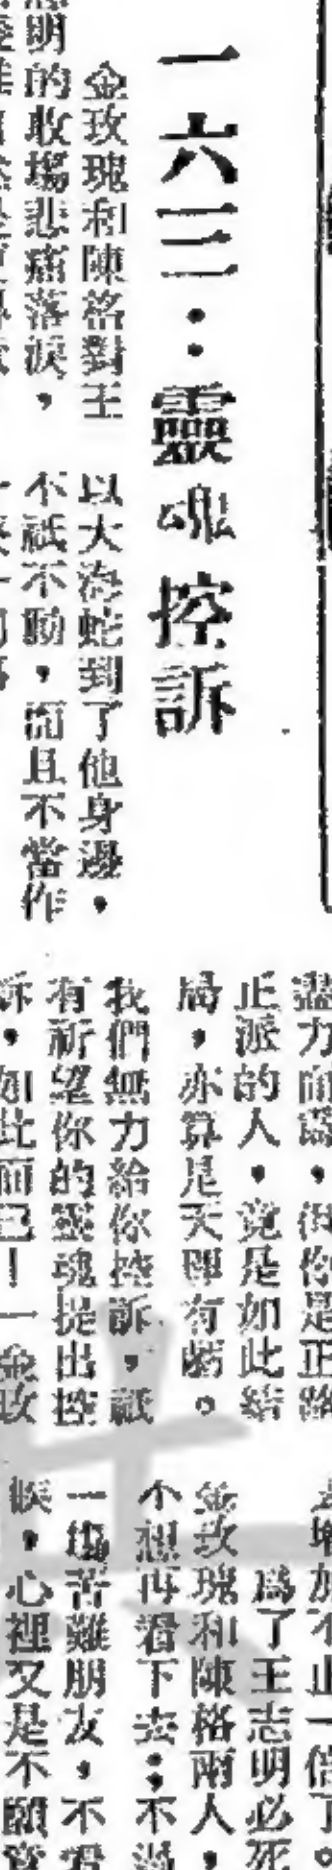 一六三：靈魂控訴
金玫瑰和陳格對王
明的收場悲痛落淚，
以大海蛇到了他身邊，
不祇不動，而且不當作
盡力而為，但你是正路
正派的人，竟是如此結
局，亦算是天理有虧。
我們無力給你控訴，祇
有祈望你的靈魂提出控
訴，如此而已！—金玫
增加不止一倍了。
爲了王志明必死
金玫瑰和陳格兩人，
不想再看下去；不過
一場苦難朋友，不看
眼，心裡又是不願意